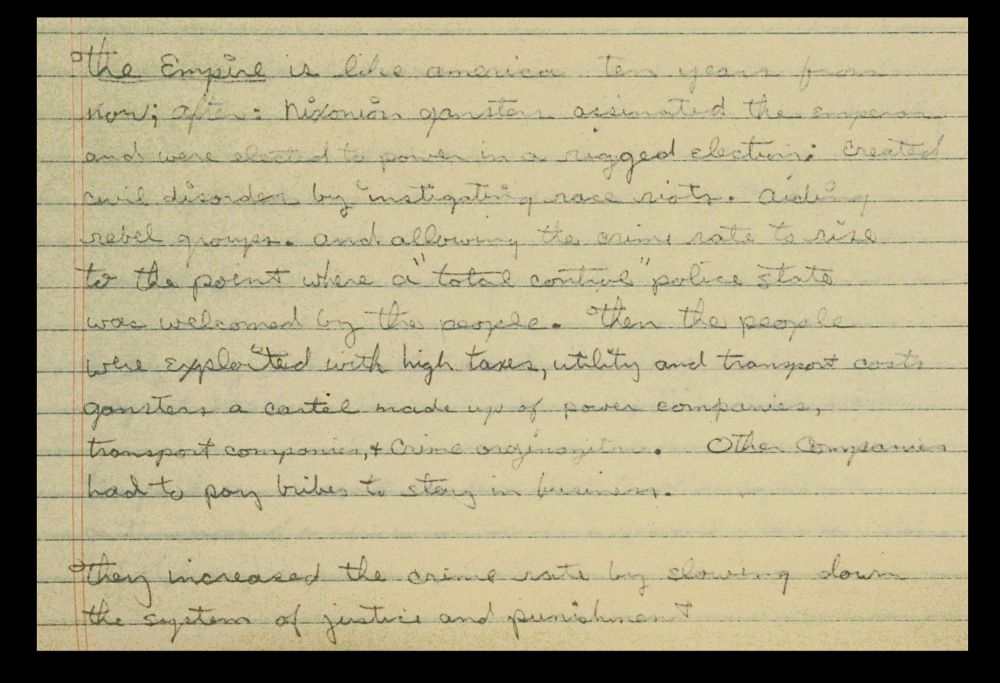 The Empire is like america ten years from
now; after: Nixonion gansters assinated the emperor
and were elected to power in a rigged election; created
civil disorder by instigating race riots. aiding
rebel groups. and allowing the crime rate to rise
to the point where a "total control" police state
was welcomed by the people. Then the people
were exploited with high taxes, utility and transport costs
gansters a cartel made up of power companies,
transport companies, + Crime Other Companies
had to pay bribes to stay in business.
They increased the crime rate by slowing down
the system of justice and punishment